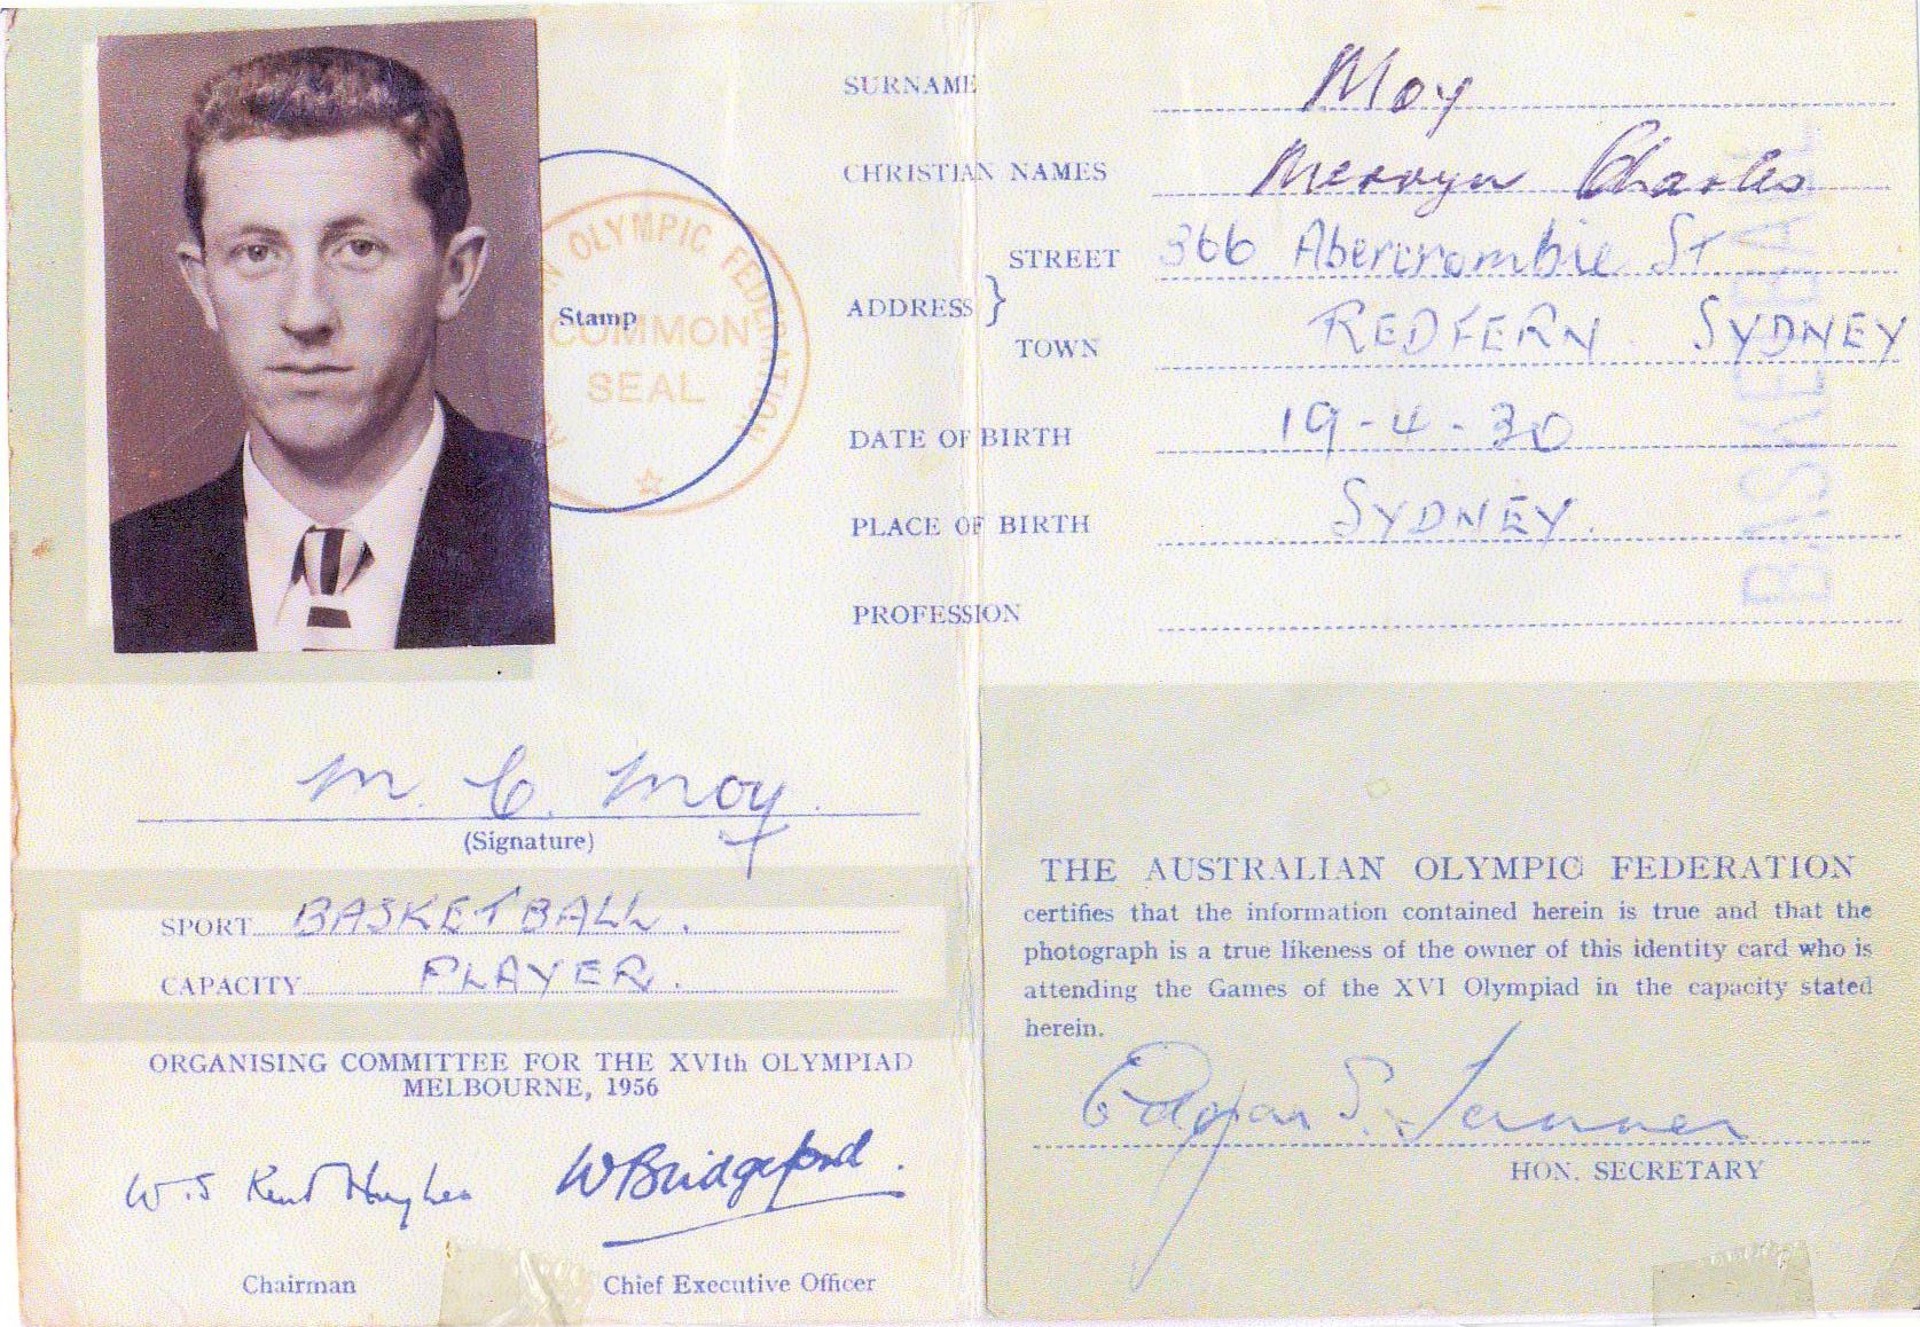 SURNAME Moy
CHRISTIAN NAMES Mervyn Charles
ADDRESS } STREET 366 Abercrombie St
TOWN REDFERN SYDNEY
DATE OF BIRTH 19-4-30
PLACE OF BIRTH SYDNEY.
PROFESSION
BASKETBALL
Stamp
OLYMPIC FEDERATION
COMMON
SEAL
M. C. Moy.
(Signature)
SPORT BASKETBALL.
CAPACITY PLAYER.
ORGANISING COMMITTEE FOR THE XVIth OLYMPIAD
MELBOURNE, 1956
W.S Kent Hughes WBridgeford.
Chairman Chief Executive Officer
THE AUSTRALIAN OLYMPIC FEDERATION
certifies that the information contained herein is true and that the
photograph is a true likeness of the owner of this identity card who is
attending the Games of the XVI Olympiad in the capacity stated
herein.
Edgar S. Tanner
HON. SECRETARY